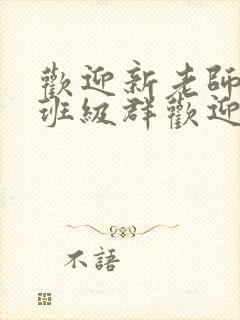 歡迎新老師
班級群歡迎
不語